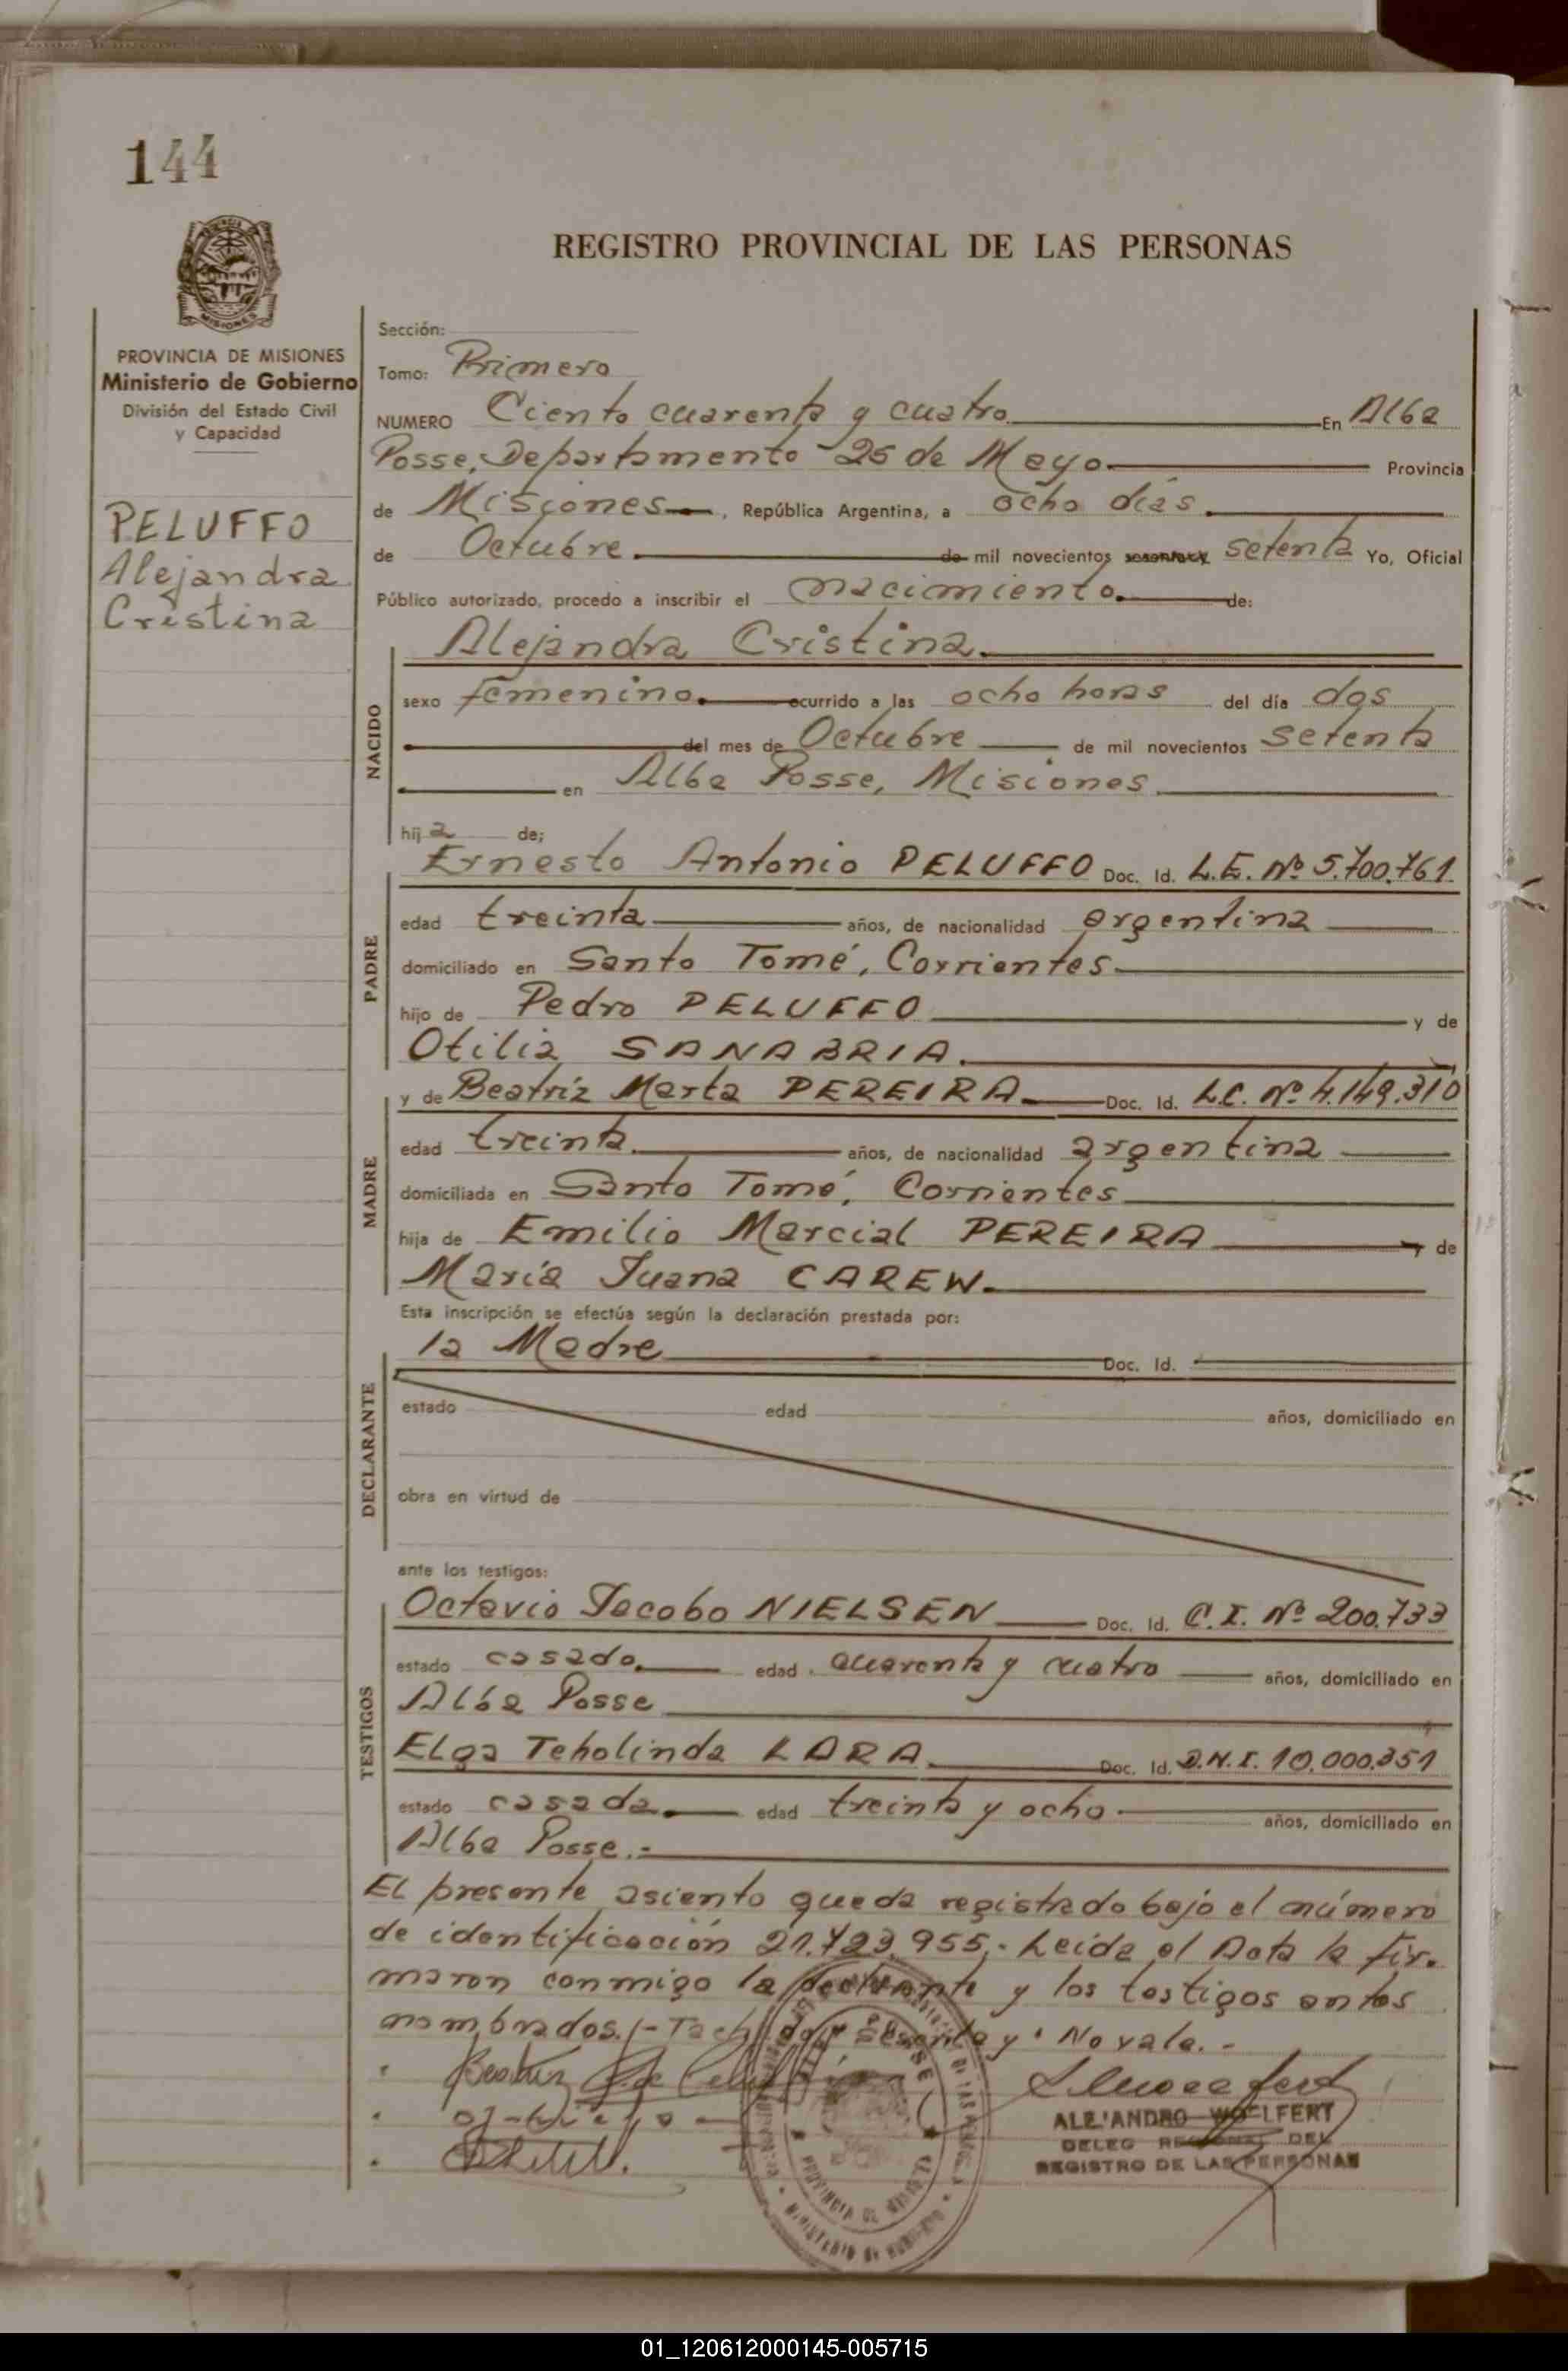 144
REGISTRO PROVINCIAL DE LAS PERSONAS
MISIONES
PROVINCIA DE MISIONES
Ministerio de Gobierno
División del Estado Civil
y Capacidad
PELUFFO
Alejandra
Cristina
Sección:
Tomo: Primero
NUMERO Ciento cuarenta y cuatro En Alba
Posse, Departamento 25 de Mayo Provincia
de Misiones, República Argentina, a ocho días
de Octubre de mil novecientos setenta Yo, Oficial
Público autorizado, procedo a inscribir el nacimiento de:
NACIDO
Alejandra Cristina.
sexo femenino. ocurrido a las ocho horas del día dos
del mes de Octubre de mil novecientos setenta
en Alba Posse, Misiones
hija de;
PADRE
Ernesto Antonio PELUFFO Doc. Id. L.E. Nº 5.700.761
edad treinta años, de nacionalidad argentina
domiciliado en Santo Tomé, Corrientes
hijo de Pedro PELUFFO y de
Otilia SANABRIA.
MADRE
y de Beatriz Marta PEREIRA Doc. Id. L.C. Nº 4.149.310
edad treinta. años, de nacionalidad argentina
domiciliada en Santo Tomé, Corrientes
hija de Emilio Marcial PEREIRA y de
María Juana CAREW.
Esta inscripción se efectúa según la declaración prestada por:
DECLARANTE
la Madre Doc. Id.
estado edad años, domiciliado en
obra en virtud de
ante los testigos:
TESTIGOS
Octavio Jacobo NIELSEN Doc. Id. C.I. Nº 200.733
estado casado. edad cuarenta y cuatro años, domiciliado en
Alba Posse
Elga Teholinda LARA Doc. Id. D.N.I. 10.000.351
estado casada. edad treinta y ocho años, domiciliado en
Alba Posse.-
El presente asiento queda registrado bajo el número
de identificación 21.723.955.- Leida el Acta la fir-
maron conmigo la declarante y los testigos antes
nombrados./- Tachado: "sesenta y" No vale.-
Beatriz
ALEJANDRO WOELFERT
DELEG REGIONAL DEL
REGISTRO DE LAS PERSONAS
PROVINCIA DE MISIONES
MINISTERIO DE GOBIERNO
01_120612000145-005715